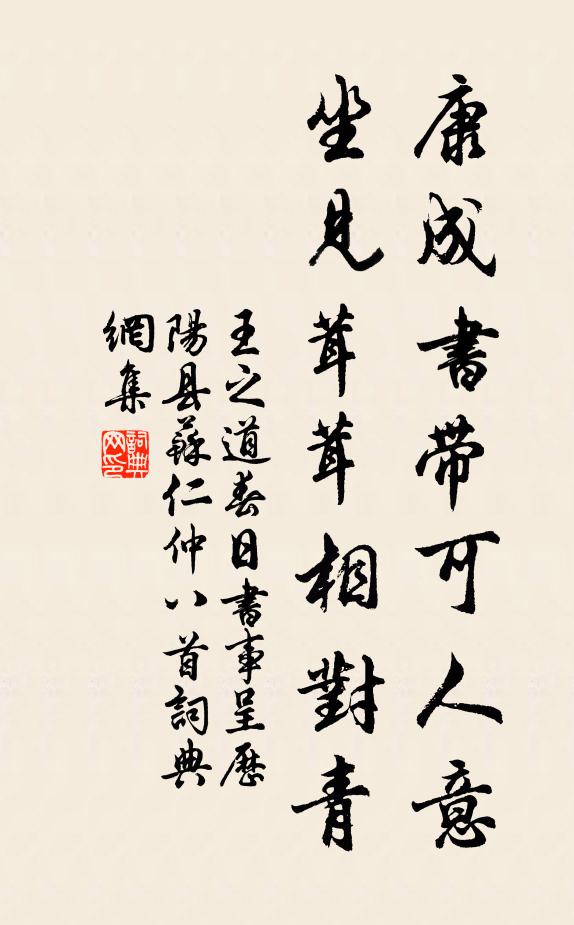 康成書带可人意
坐見茸茸相對青
王之道春日書事呈歷
陽县蘇仁仲八首詞典
網集
詞典网印